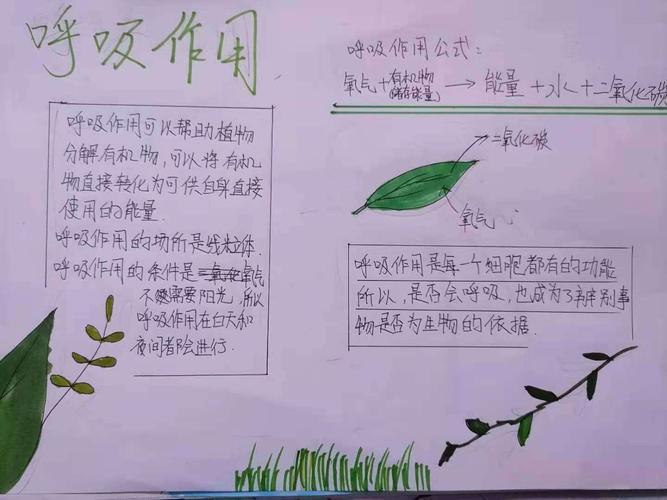 呼吸作用
呼吸作用可以帮助植物
分解有机物,可以将有机
物直接转化为可供自身直接
使用的能量.
呼吸作用的场所是线粒体.
呼吸作用的条件是氧气
不需要阳光,所以
呼吸作用在白天和
夜间都会进行.
呼吸作用公式:
氧气+有机物(储存能量)→能量+水+二氧化碳
二氧化碳
氧气
呼吸作用是每一个细胞都有的功能
所以,是否会呼吸,也成为了辨别事
物是否为生物的依据.